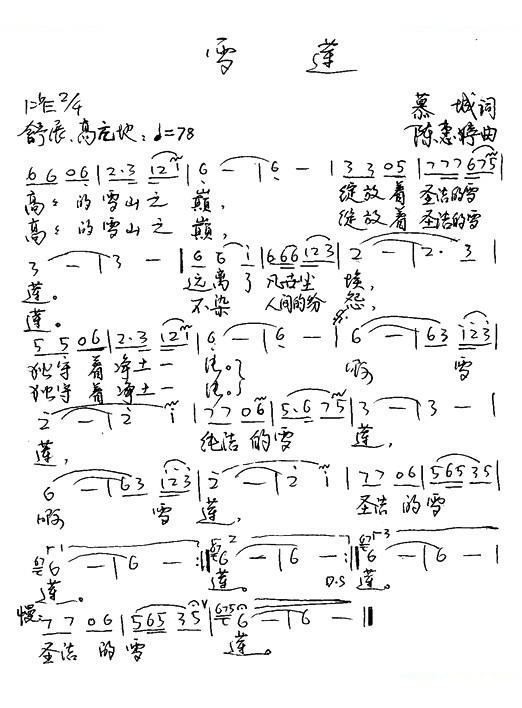 雪 莲
1=♭E 2/4
慕 城词
舒展、高亢地 ♩=78
陈惠婷曲
6 6 0 6 | 2· 3 1 2 1 | 6 — | 6 — | 3 3 0 5 | 7 7 7 6 7 5 |
高高 的 雪山 之 巅, 绽放 着 圣洁的雪
高高 的 雪山 之 巅, 绽放 着 圣洁的雪
3 — | 3 — | 6 6 i | 6 6 6 1 2 3 | 2 — | 2· 3 |
莲。 远离了 凡世尘 埃,
莲。 不染 人间的纷 怨,
5 5 0 6 | 2· 3 1 2 1 | 6 — | 6 — | 6 — | 6 3 1 2 3 |
独守 着 净土 一 啊 雪
独守 着 净土 一
2 — | 2 i | 7 7 0 6 | 5· 6 7 5 | 3 — | 3 — |
莲, 纯洁 的雪 莲,
6 — | 6 3 1 2 3 | 2 — | 2 i | 7 7 0 6 | 5 6 5 3 5 |
啊 雪 莲, 圣洁 的雪
1 6 — | 6 — :‖ 2 6 — | 6 — :‖ 3 6 — | 6 — |
莲。 莲。 D.S 莲。
慢: 7 7 0 6 | 5 6 5 3 5 | 6 7 5 6 — | 6 — ‖
圣洁 的雪 莲。